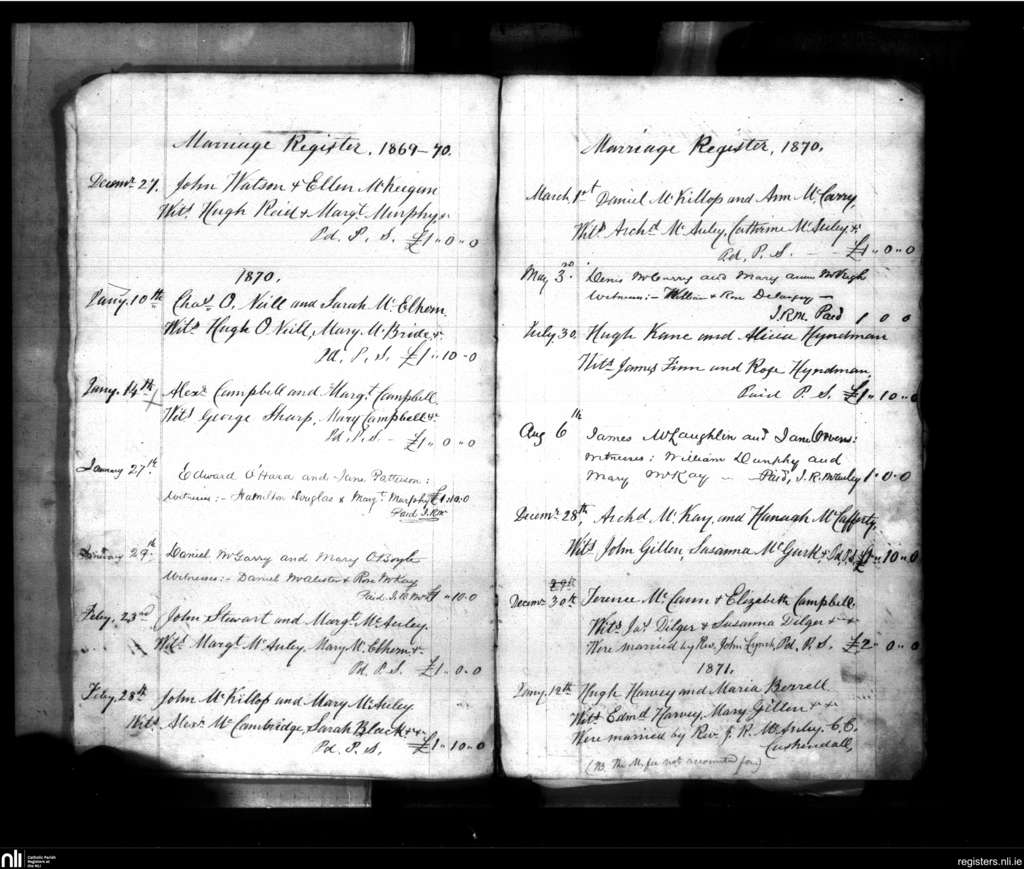 Marriage Register, 1869-70.
Decemr 27. John Watson & Ellen McKeegan
Wits Hugh Reid & Margt Murphy &
Pd. P. S. £1 „ 0 „ 0
1870.
Jany. 10th Chas O. Neill and Sarah McElhern
Wits Hugh O Neill, Mary McBride, &
Pd, P, S, £1 „ 10 „ 0
Jany. 14th Alexr Campbell and Margt. Campbell
Wits George Sharp, Mary Campbell &
Pd. P. S. - £1 „ 0 „ 0
January 27th Edward O'Hara and Jane Patterson:
Witnesses:- Hamilton Douglas & Margt Murphy £1:10:0
Paid J.R.M
January 29th Daniel McGarry and Mary O'Boyle
Witnesses:- Daniel McAlister & Rose McKay
Paid J.R.Mc £1 „ 10. 0
Feby. 23rd John Stewart and Margt. McAuley.
Wits Margt McAuley, Mary McElhern &
Pd. P. S. £1 . 0 . 0
Feby. 28th John McKillop and Mary McAuley
Wits Alexr McCambridge, Sarah Black &
Pd. P. S. £1 „ 10 „ 0
Marriage Register, 1870.
March 1st Daniel McKillop and Ann McCarry
Wits Archd McAuley, Catherine McAuley &
Pd, P. S. - - £1 „ 0 „ 0
May 3rd Denis McCurry and Mary Anne McVeigh
Witnesses:- William & Rose Delargy -
J.R.M. Paid 1 0 0
July 30. Hugh Kane and Alicia Hyndman
Wits James Finn and Rose Hyndman,
Paid P. S. £1 „ 10 „ 0
Aug 6th James McLaughlin and Jane Owens:
Witnesses: William Dunphy and
Mary McKay - Paid, J.R.McAuley 1 . 0 . 0
Decemr 28th, Archd McKay, and Hanagh McCafferty,
Wits John Gillen, Susanna McGurk & Pd. P. S. £1 „ 10 „ 0
29th
Decemr 30th Terence McCann & Elizabeth Campbell.
Wits Jas Dilger & Susanna Dilger & &
Were married by Rev. John Lynch, Pd, P. S. £2 „ 0 „ 0
1871.
Jany. 12th Hugh Harvey and Maria Berrell.
Wits Edmd Harvey, Mary Gillen & &
Were married by Rev. J. R. McAuley C.C.
Cushendall,
(NB. The M. fee not accounted for)
nli Catholic Parish
Registers at
the NLI
registers.nli.ie